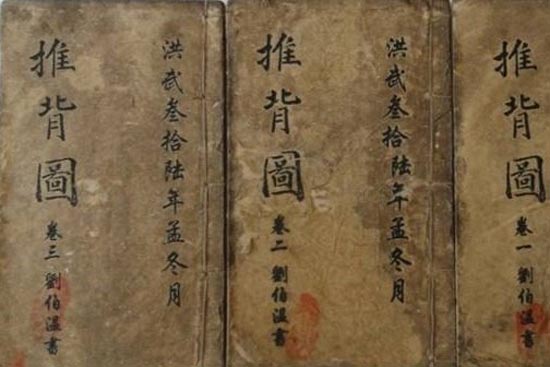 推背圖 卷一 劉伯溫書
洪武叁拾陸年孟冬月
推背圖 卷二 劉伯溫書
洪武叁拾陸年孟冬月
推背圖 卷三 劉伯溫書